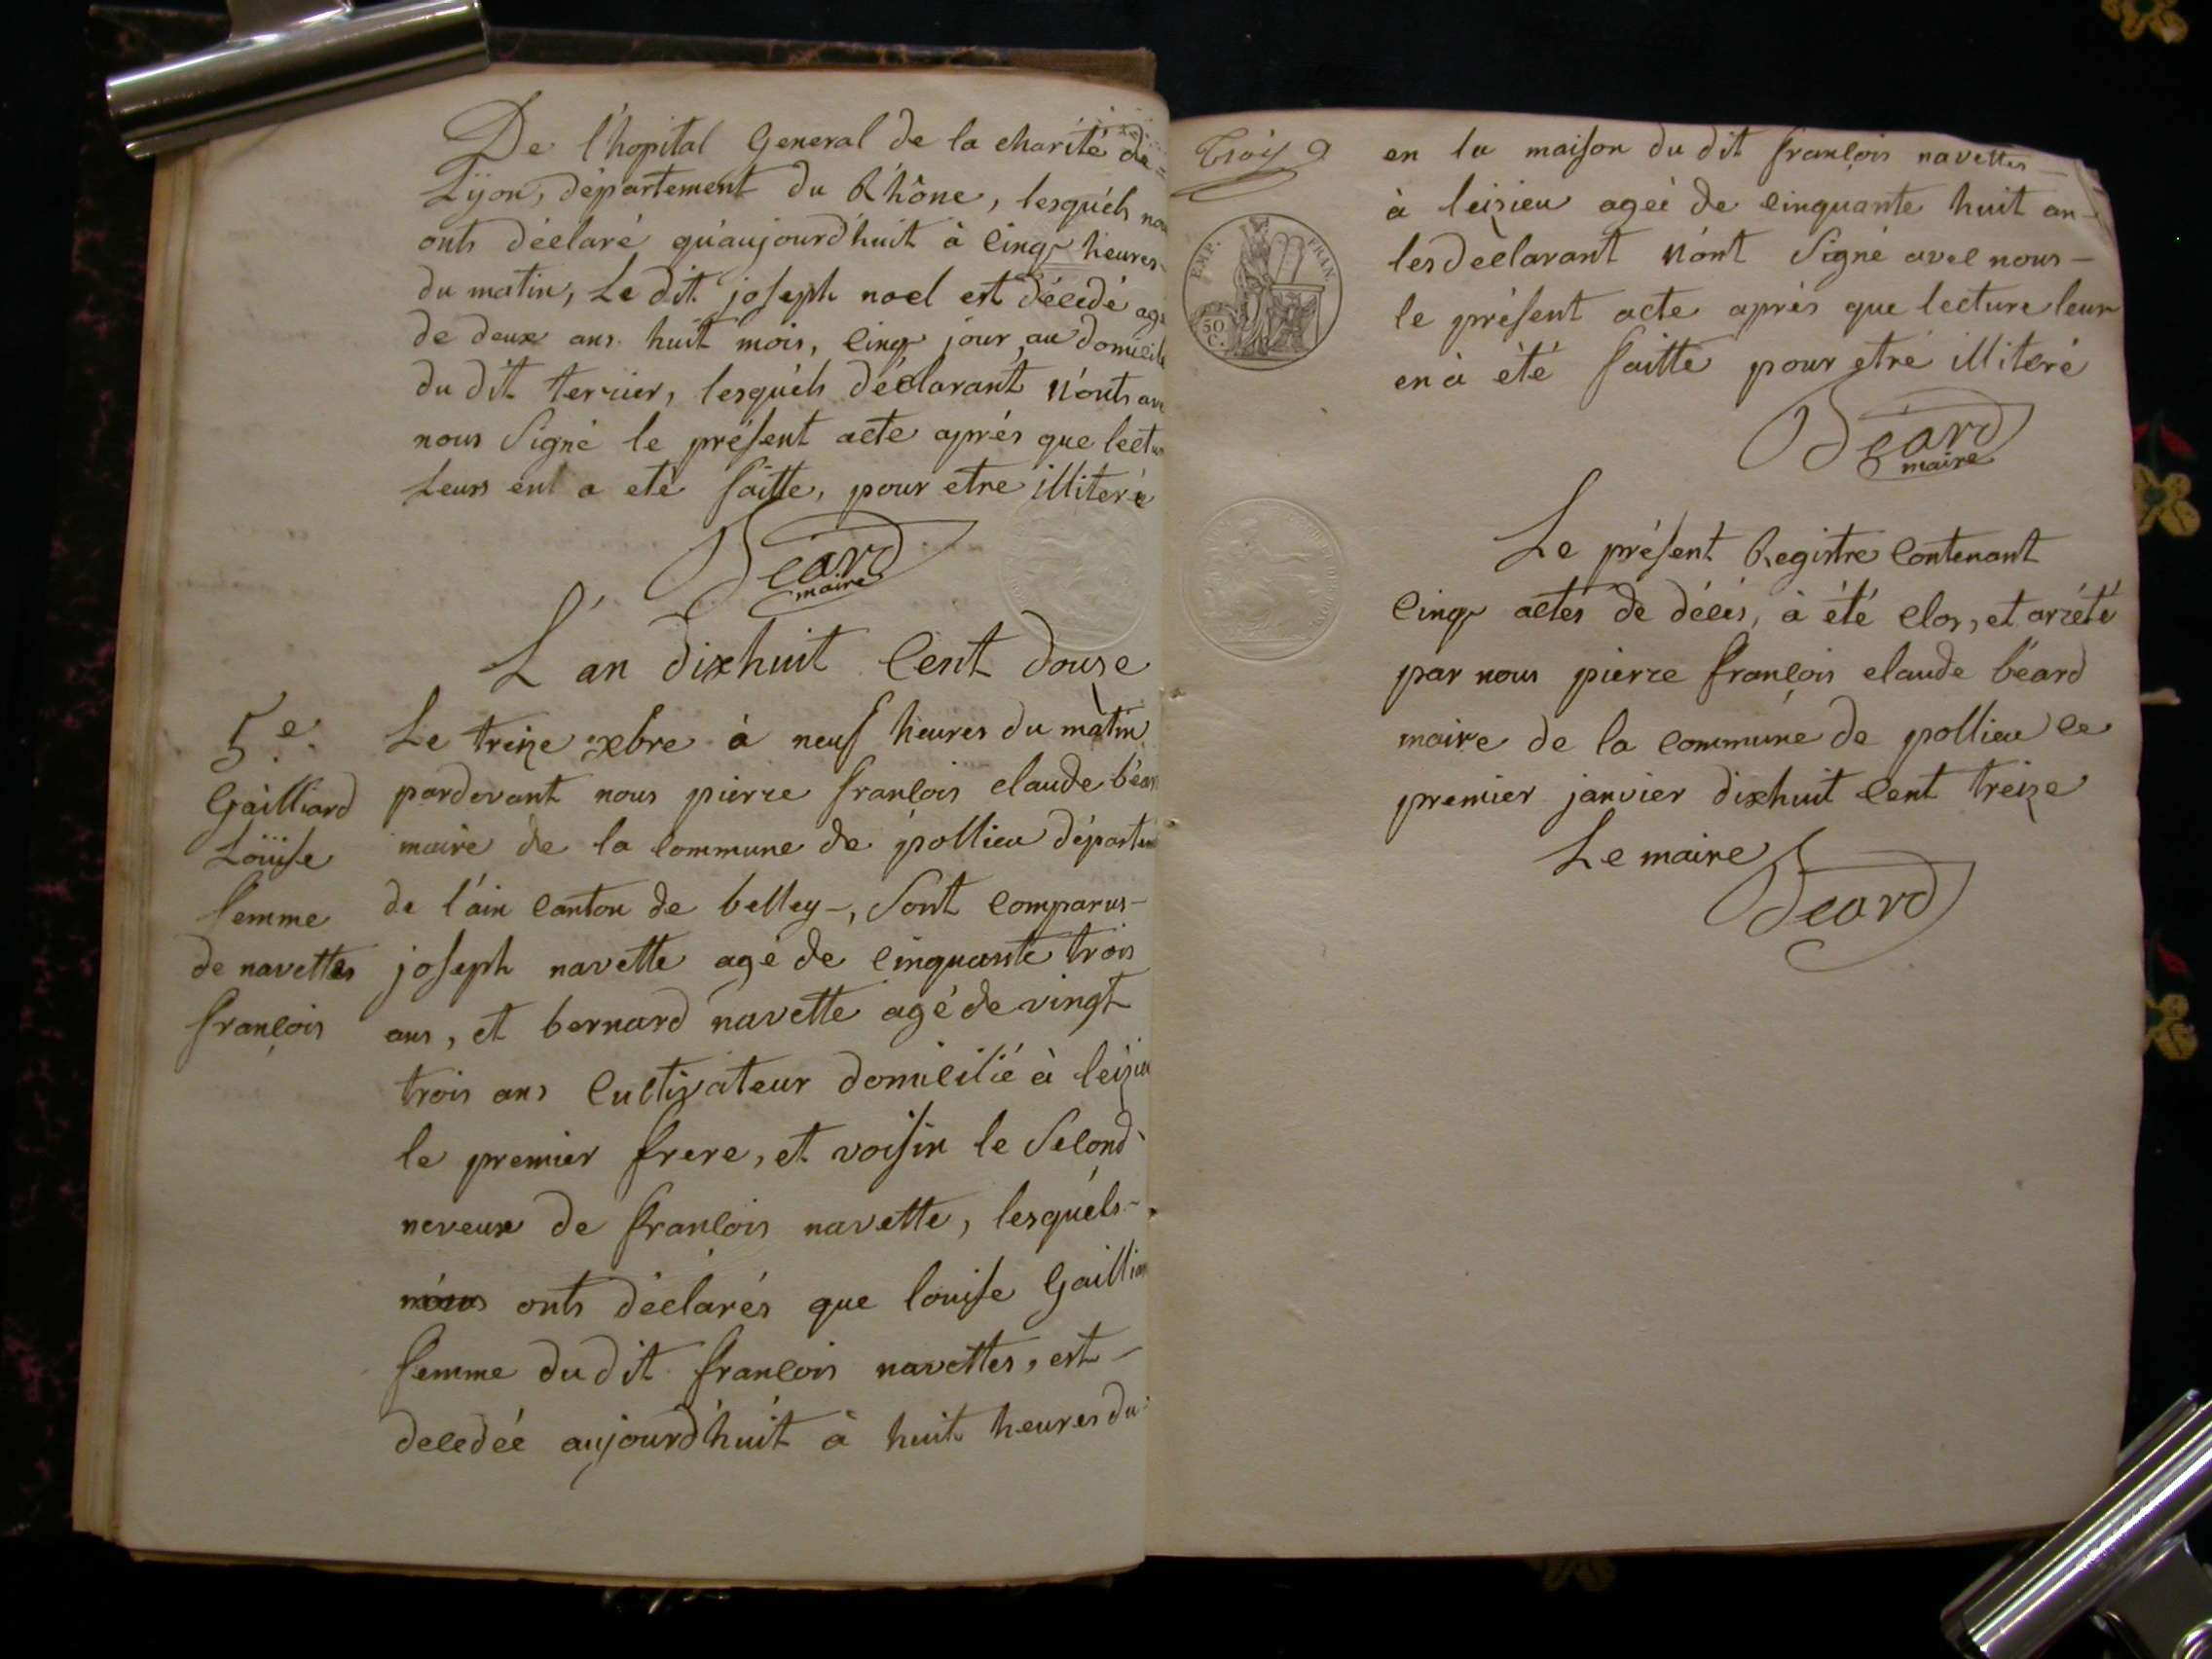 De l'hopital General de la charité de
Lÿon, département du Rhône, lesquéls nou
onts déclaré qu'aujourd'huit à Cinq heures
du matin, Le dit joseph noel est décedé agé
de deux ans huit mois, Cinq jour, au domicile
du dit terrier, lesquéls déclarant n'onts av
nous Signé le présent acte aprés que lectu
Leurs ent a eté faitte, pour etre illiteré
Béard
maire
L'an dixhuit Cent douze
5e.
Gailliard
Loüise
femme
de navettes
françois
Le treize xbre à neuf heures du matin
pardevant nous pierre françois claude béar
maire de la commune de pollieu départem
de l'ain canton de belley-, Sont comparus-
joseph navette agé de Cinquante trois
ans, et bernard navette agé de vingt
trois ans Cultivateur domicilié à leizieu
le premier frere, et voisin le Second
neveux de françois navette, lesquéls-
nous onts déclarés que louise Gaillia
femme du dit françois navettes, est-
decedéé aujourd'huit à huit heures du
trois
EMP. FRAN.
50
C.
en la maison du dit françois navettes-
à leizieu ageé de cinquante huit an-
les déclarant n'ont Signé avec nous-
le présent acte aprés que lecture leur
en à été faitte pour etre illiteré
Béard
maire
Le présent Registre Contenant
Cinq actes de décés, à été clos, et arrété
par nous pierre françois claude béard
maire de la commune de pollieu ce
premier janvier dixhuit Cent treize
Le maire
Béard